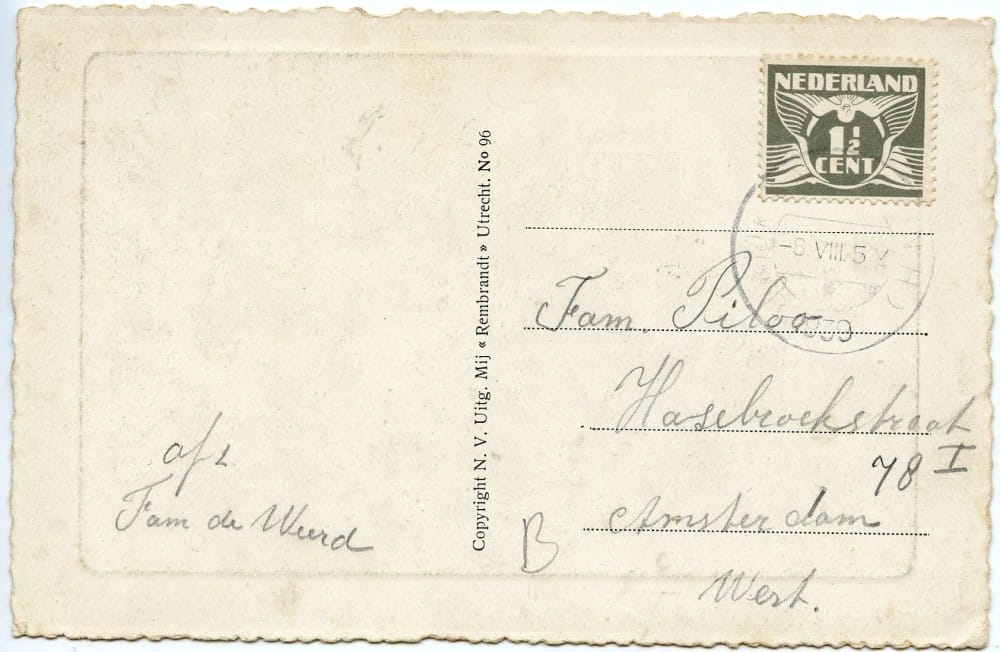 NEDERLAND
1½
CENT
-8 VIII. 5
1939
Fam. Piloo
Hasebroekstraat
78 I
Amsterdam
West.
B
afz
Fam de Weerd
Copyright N. V. Uitg. Mij « Rembrandt » Utrecht. No 96